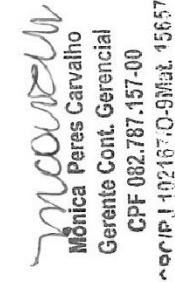 Mônica Peres Carvalho
Gerente Cont. Gerencial
CPF 082.787.157-00
CRC/RJ 102167/O-9Mat. 15657